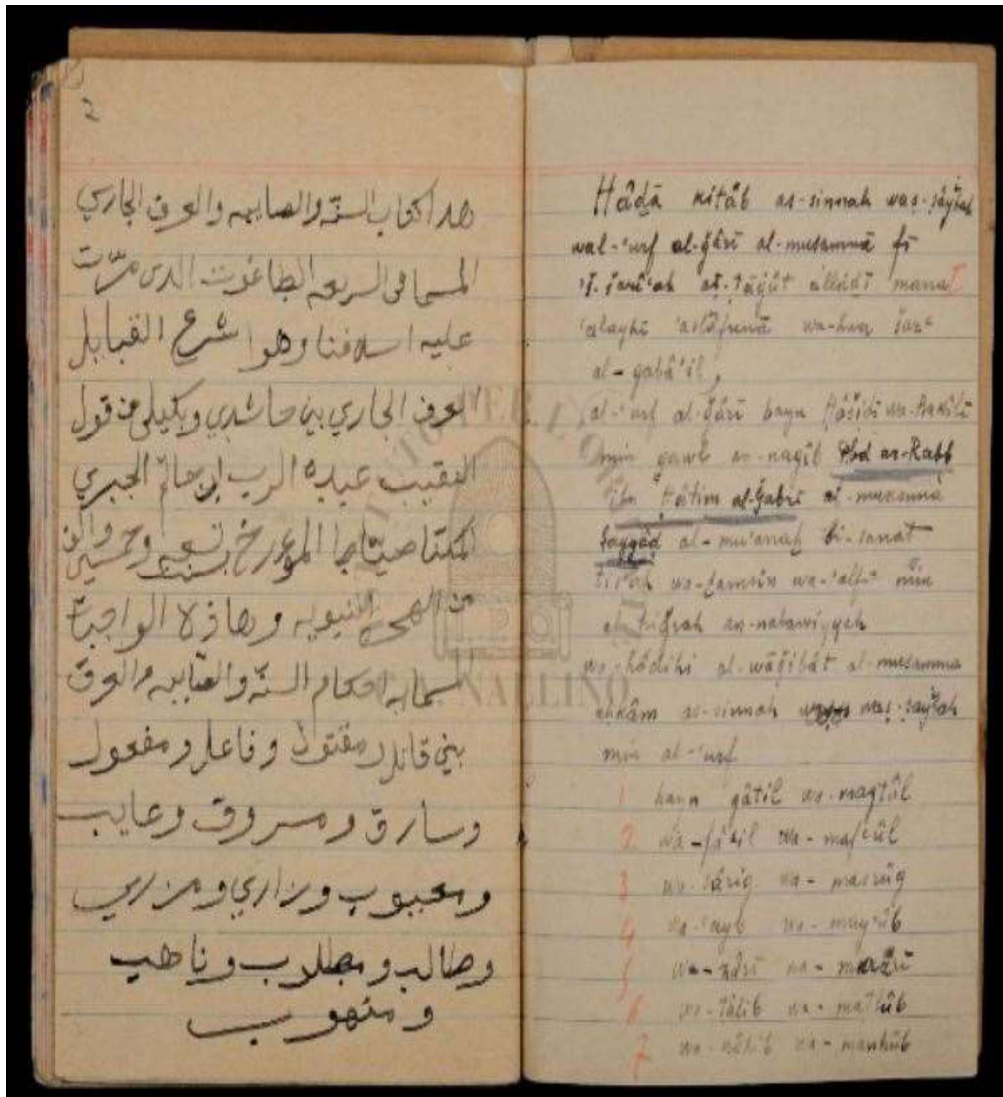 2
هدا كتاب السنه والصايبه والعرف الجاري
المسما في السريعه الطاغوت الدي مرّت
عليه اسلافنا وهوا شرع القبايل
العرف الجاري بين حاشدي وبكيلي من قول
النقيب عبده الرب ابن حاتم الجبري
المؤرخ بسنة تسعه وخمسين والف
من الهجره النبويه وهاذه الواجبات
المسمايه احكام السنه والصايبه والعرف
بين قاتل ومقتول وفاعل ومفعول
وسارق ومسروق وعايب
ومعيوب وزاري ومزري
وطالب ومطلوب وناهب
ومنهوب
Hâḏâ kitâb as-sinnah waṣ-ṣâybah
wal-ʿurf al-ǧârî al-musammâ fî
'š-šarîʿah aṭ-ṭâġût allâdî marrat
ʿalayhi 'aslâfunâ wa-hua šarʿ
al-qabâ'il,
al-ʿurf al-ǧârî bayn Ḥâšidî wa-Bakîlî
min qawl an-naqîb ʿAbd ar-Rabb
ibn Ḥâtim al-Ǧabrî al-mukannâ
Ṣayyâd al-mu'arraḫ bi-sanat
tisʿah wa-ḫamsîn wa-'alf min
al-hiǧrah an-nabawiyyah
wa-hâdihi al-wâǧibât al-musamma
aḥkâm as-sinnah waṣ-ṣaybah
min al-ʿurf
1 bayn qâtil wa-maqtûl
2 wa-fâʿil wa-mafʿûl
3 wa-sâriq wa-masrûq
4 wa-ʿayb wa-mayʿûb
5 wa-zârî wa-mazrî
6 wa-ṭâlib wa-maṭlûb
7 wa-nâhib wa-manhûb